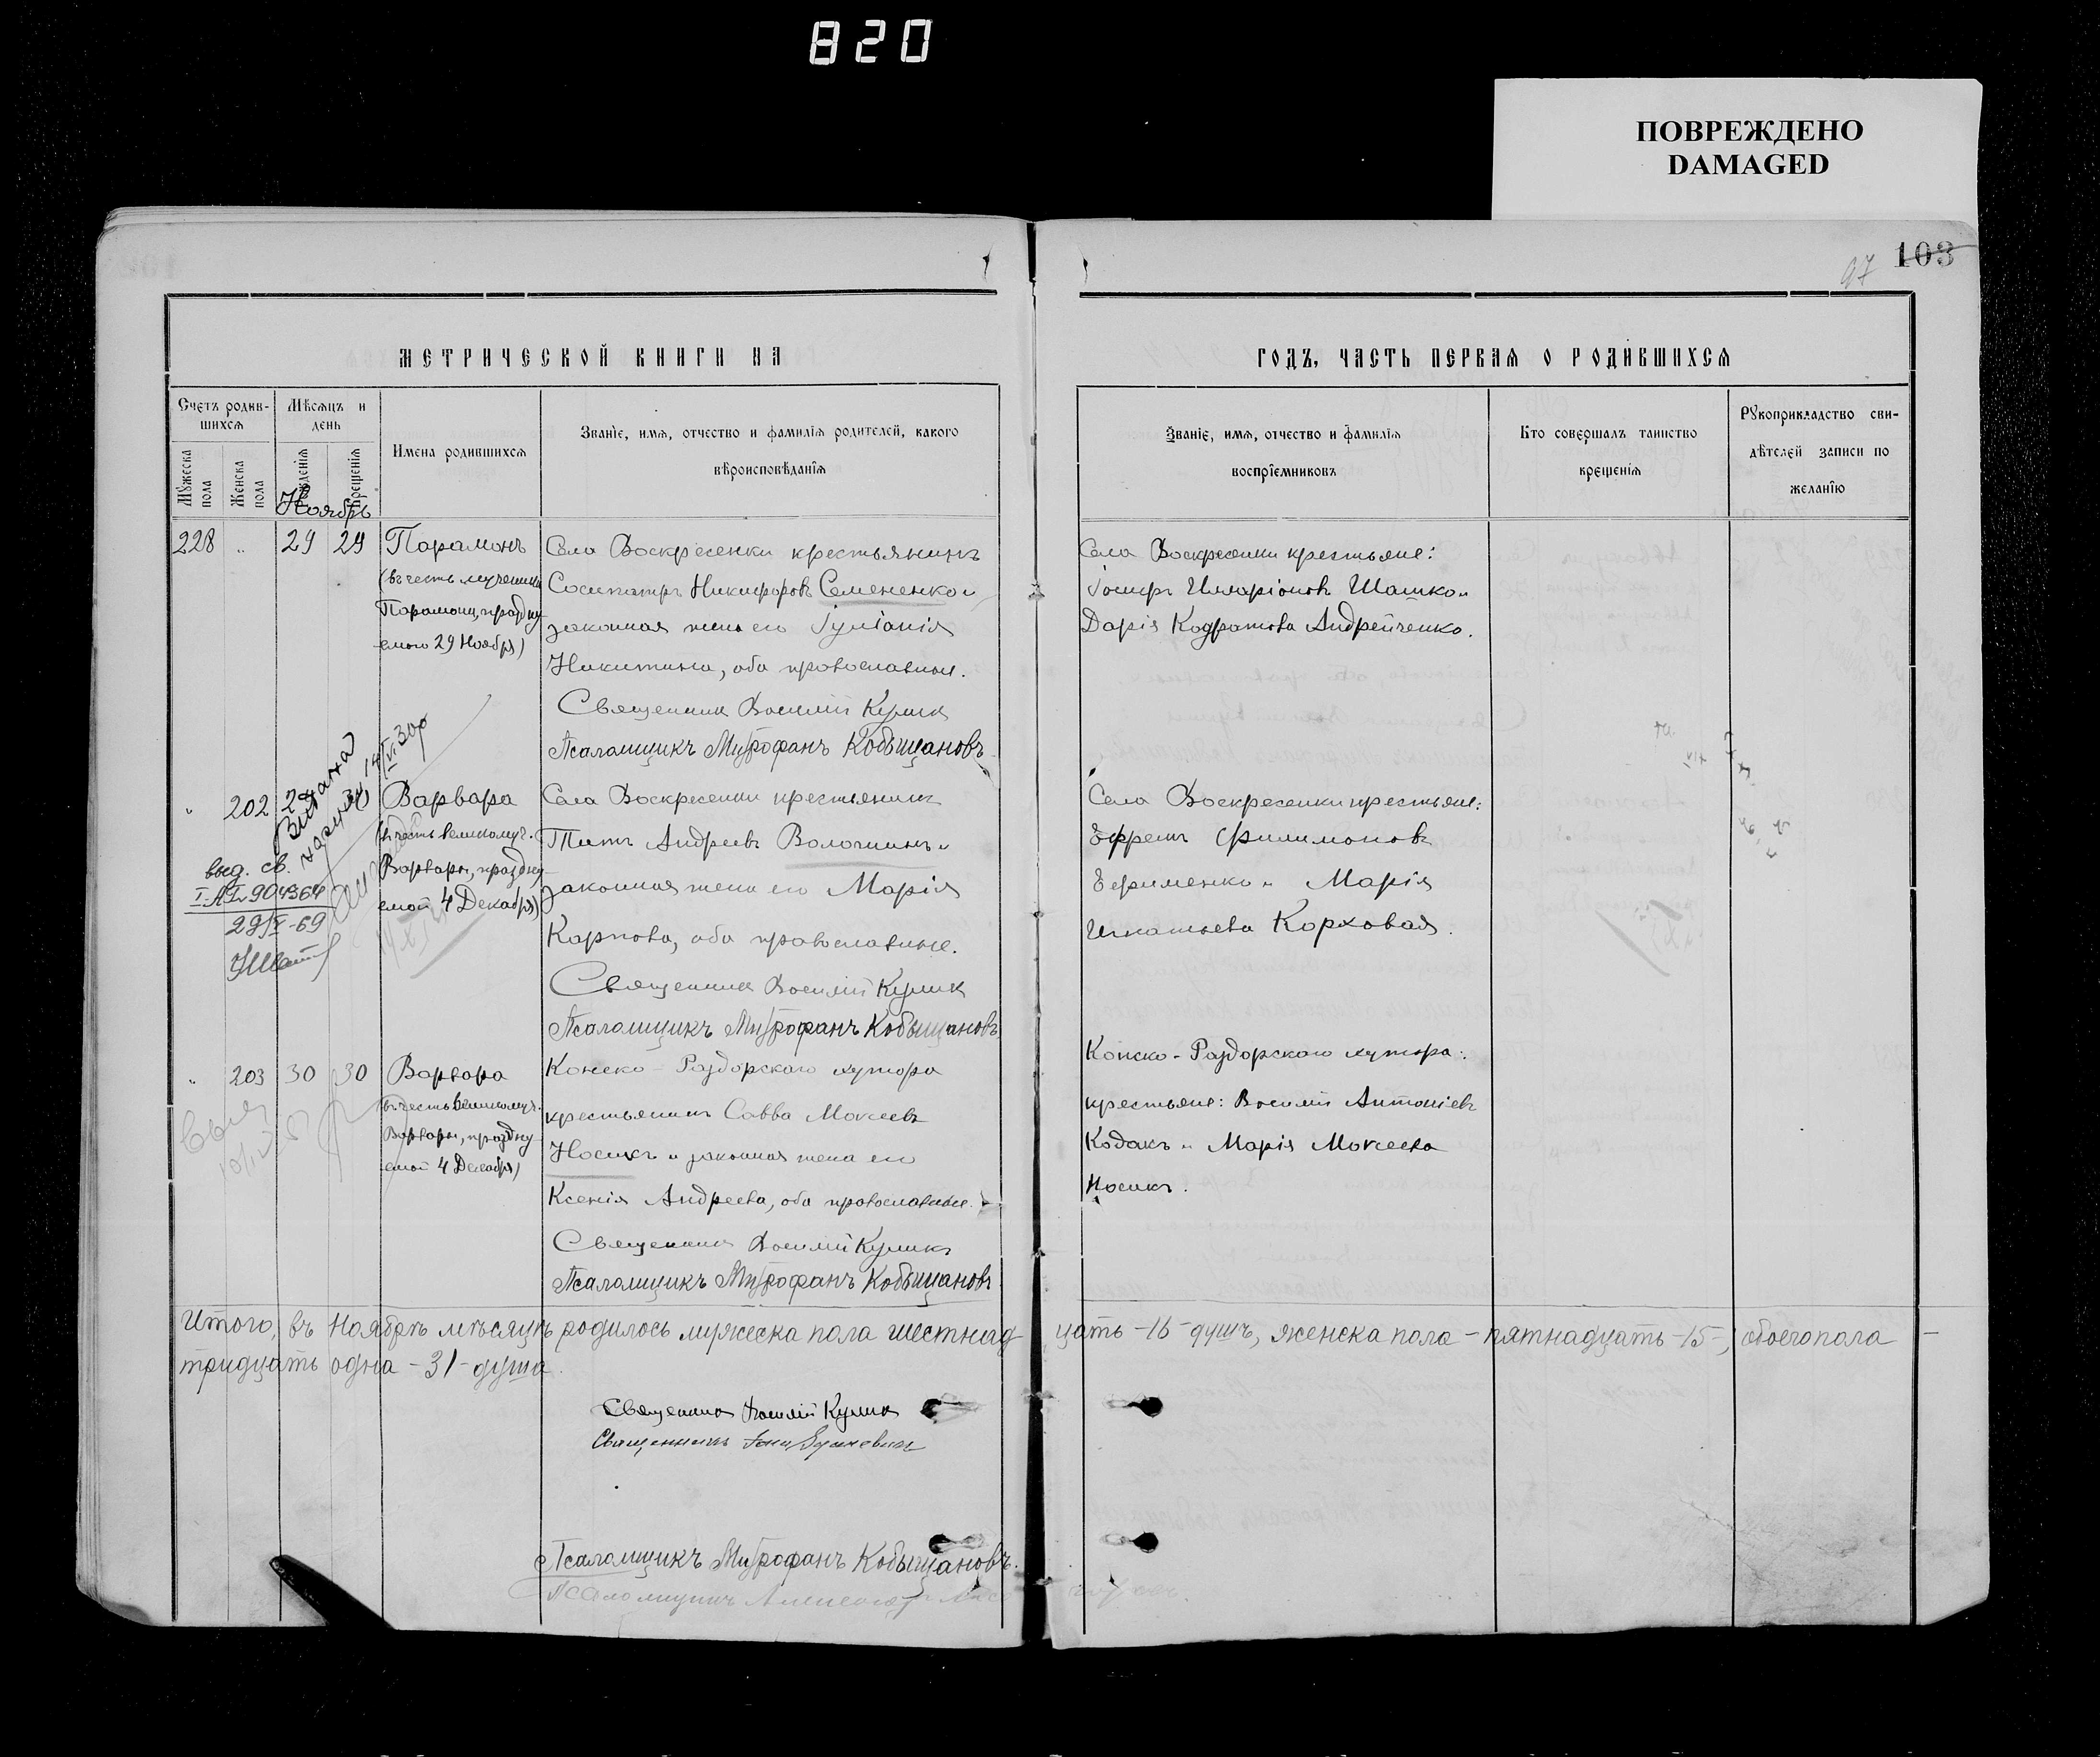 820
ПОВРЕЖДЕНО
DAMAGED
103
97
МЕТРИЧЕСКОЙ КНИГИ НА
ГОДЪ, ЧАСТЬ ПЕРВАЯ О РОДИВШИХСЯ
Счетъ родив-
шихся
Мѣсяцъ и
день
Мужеска
пола
Женска
пола
рожденія
крещенія
Имена родившихся
Званіе, имя, отчество и фамилія родителей, какого
вѣроисповѣданія
Званіе, имя, отчество и фамилія
воспріемниковъ
Кто совершалъ таинство
крещенія
Рукоприкладство сви-
дѣтелей записи по
желанію
Ноябрь
228 „ 29 29
Парамонъ
(въ честь мученика
Парамона, праздну
емаго 29 Ноября)
Села Воскресенки крестьянинъ
Сосипатръ Никифоровъ Семененко и
законная жена его Іуліанія
Никитина, оба православные.
Священникъ Василій Куликъ
Псаломщикъ Митрофанъ Кобыщановъ
Села Воскресенки крестьяне:
Іосифъ Илларіоновъ Шашко и
Дарія Кодратова Андрейченко.
„ 202 30
Варвара
(въ честь великомуч.
Варвары, праздну
емой 4 Декабря)
Села Воскресенки крестьянинъ
Титъ Андреевъ Волошинъ и
законная жена его Марія
Карпова, оба православные.
Священникъ Василій Куликъ
Псаломщикъ Митрофанъ Кобыщановъ
Села Воскресенки крестьяне:
Ефремъ Филимоновъ
Ефименко и Марія
Игнатьева Коржовая.
выд. св.
29/X-69
„ 203 30 30
Варвара
(въ честь великомуч.
Варвары, праздну
емой 4 Декабря)
Конско-Раздорскаго хутора
крестьянинъ Савва Моисеевъ
Носикъ и законная жена его
Ксенія Андреева, оба православные.
Священникъ Василій Куликъ
Псаломщикъ Митрофанъ Кобыщановъ
Конско-Раздорскаго хутора
крестьяне: Василій Антоніевъ
Кодакъ и Марія Моисеева
Носикъ.
Итого, въ Ноябрѣ мѣсяцѣ родилось мужеска пола шестнад цать -16- душъ, женска пола - пятнадцать -15-, обоего пола -
тридцать одна - 31 - душа.
Священникъ Василій Куликъ
Священникъ
Псаломщикъ Митрофанъ Кобыщановъ.
Псаломщикъ